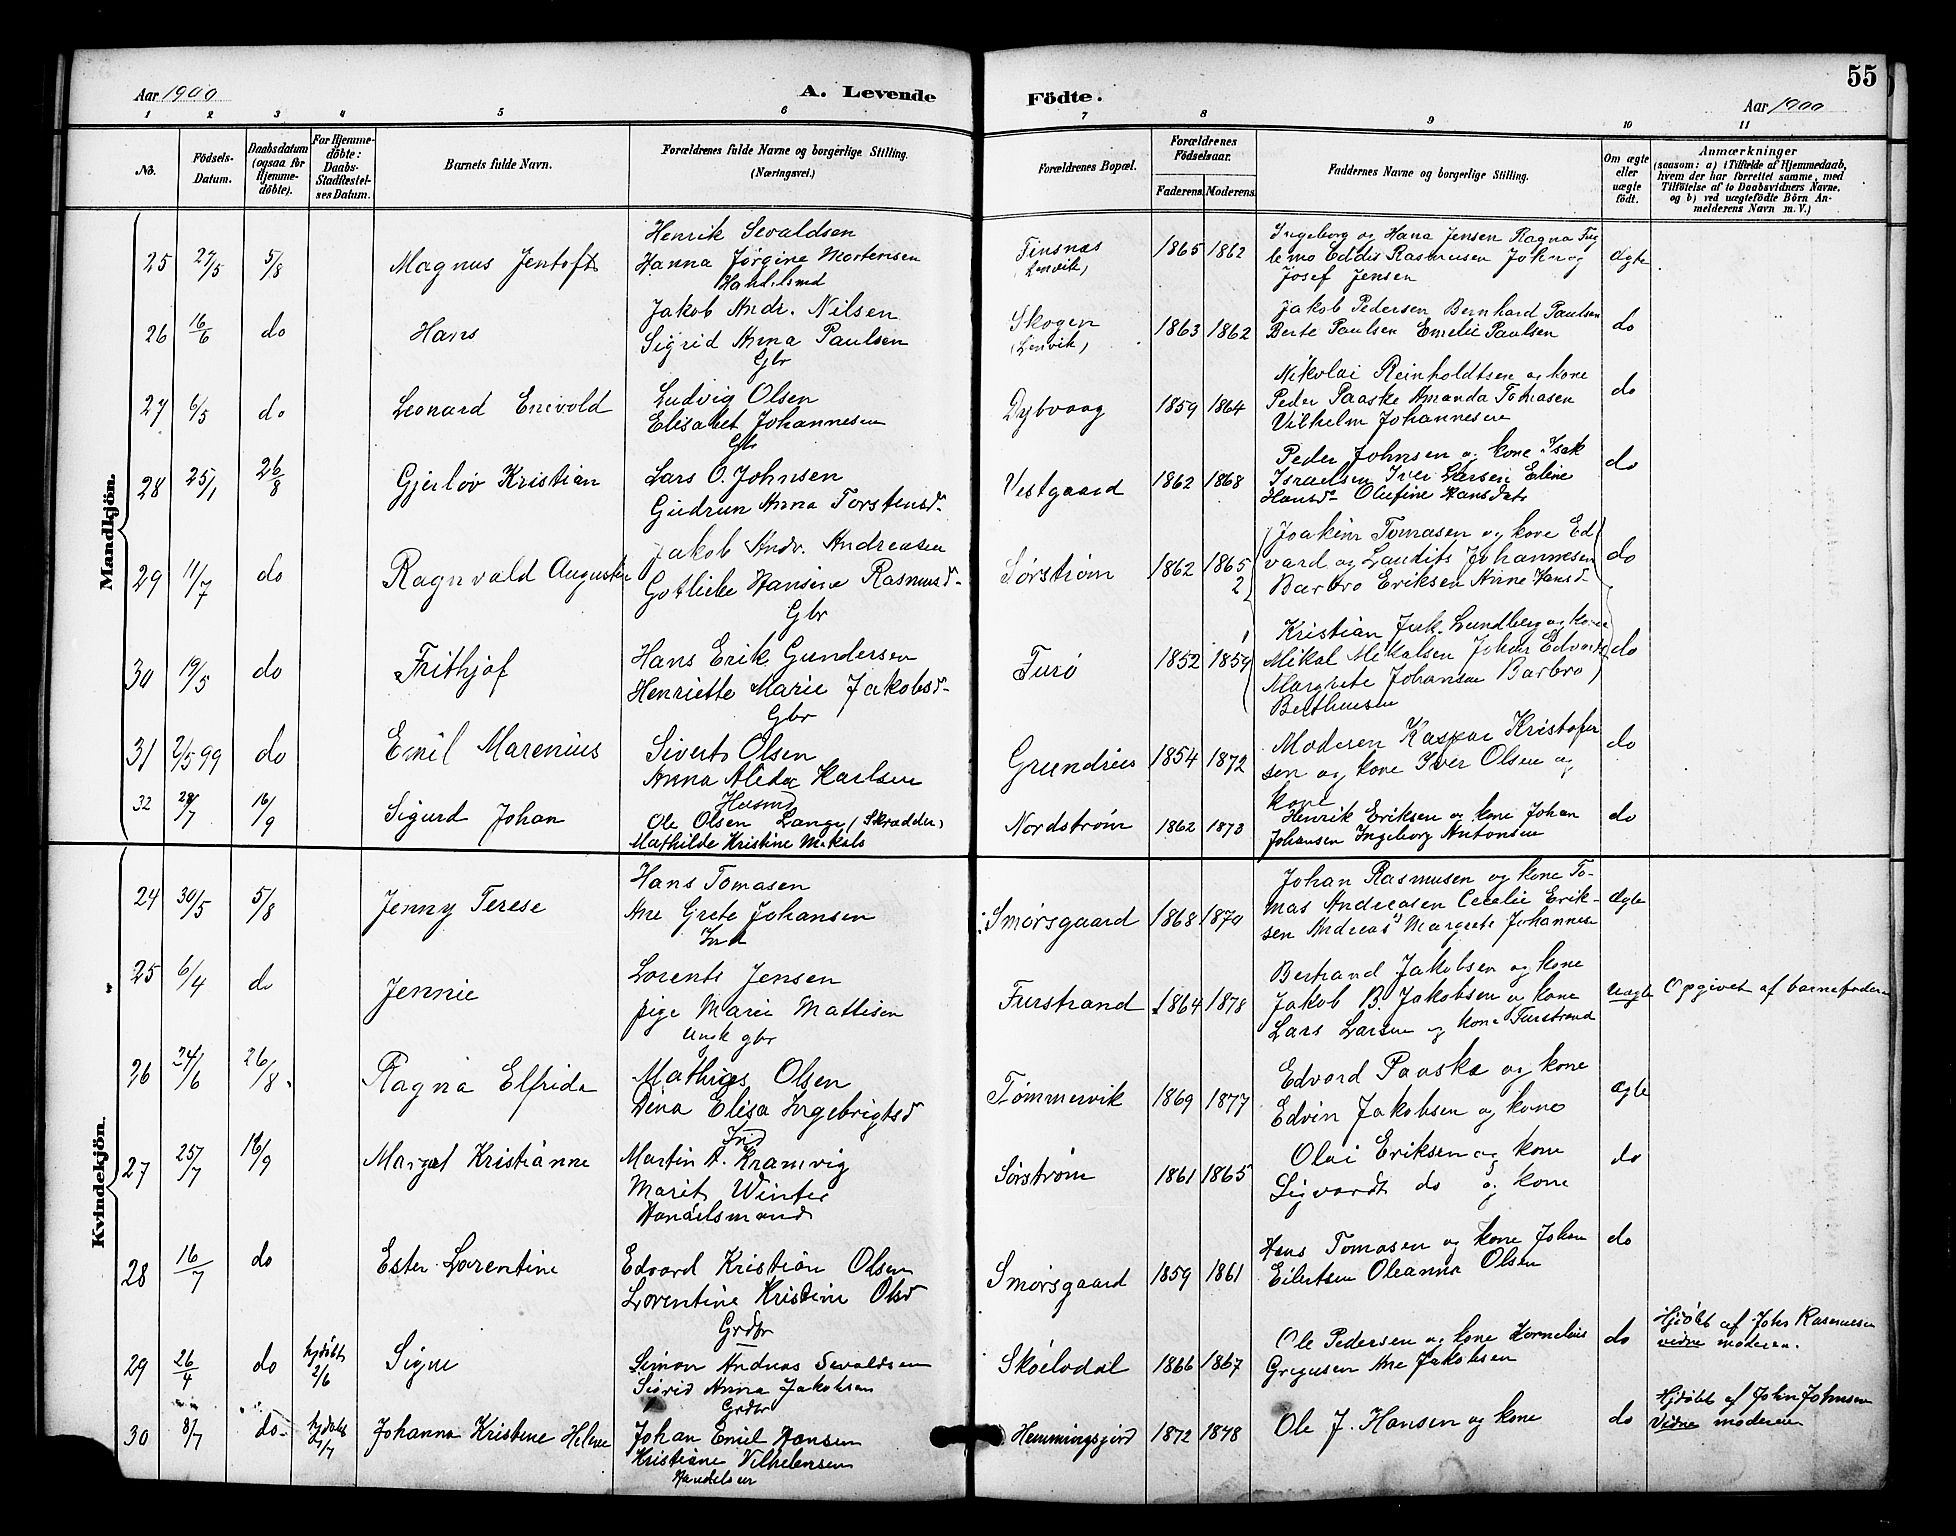 Aar 1900
A. Levende
Födte.
55
Aar 1900
1 2 3 4 5 6 7 8 9 10 11
No.
Födsels-Datum.
Daabsdatum (ogsaa for Hjemme-döbte).
For Hjemme-döbte: Daabs-Stadfæstel-ses Datum.
Barnets fulde Navn.
Forældrenes fulde Navne og borgerlige Stilling.
(Næringsvei.)
Forældrenes Bopæl.
Forældrenes Födselsaar.
Faderens. Moderens.
Faddernes Navne og borgerlige Stilling.
Om ægte eller uægte födt.
Anmærkninger
(saasom: a) i Tilfælde af Hjemmedaab,
hvem der har forrettet samme, med
Tilföielse af to Daabsvidners Navne.
og b) ved uægtefödte Börn An-
melderens Navn m. V.)
Mandkjön.
25 27/5 5/8 Magnus Jentoft
Henrik Sevaldsen
Hanna Jørgine Mortensen
Handelsmd
Finsnæs
(Lenvik)
1865 1862
Ingeborg og Hana Jensen Ragna Fug
lemo Eddis Rasmusen John og
Josef Jensen
ægte
26 16/6 do Hans
Jakob Andr. Nilsen
Sigrid Anna Paulsen
Gbr
Skogen
(Lenvik)
1863 1862
Jakob Pedersen Bernhard Paulsen
Berte Paulsen Emelie Paulsen
do
27 6/5 do Leonard Enevold
Ludvig Olsen
Elisabet Johannesen
Gbr
Dybvaag
1859 1864
Nikolai Reinholdtsen og kone
Peder Paaske Amanda Tomasen
Vilhelm Johannesen
do
28 25/1 26/8 Gjerløv Kristian
Lars O. Johnsen
Gudrun Anna Torstensd.
Vestgaard
1862 1868
Peder Johnsen og kone Isak
Israelsen Iver Larsen Eline
Hansd. Olufine Hansdats
do
29 11/7 do Ragnvald Augustin
Jakob Andr. Andreasen
Gotliebe Hansine Rasmusd.
Gbr
Sørstrøm
1862 1865
2
Joakim Tomasen og kone Ed
vard og Laudits Johannesen
Barbro Eriksen Anne Hansd
do
30 19/5 do Frithjof
Hans Erik Gundersen
Henriette Marie Jakobsd.
Gbr
Furø
1852 1859
Kristian Jak. Lundberg og kone
Mikal Mikalsen Johan Edvards
Margrete Johansen Barbro
Bertheusen
do
31 2/5 99 do Emil Marenius
Sivert Olsen
Anna Alida Karlsen
Husmd
Grundnes
1854 1872
Moderen Kaspar Kristofer
sen og kone Iver Olsen og
kone
do
32 29/7 16/9 Sigurd Johan
Ole Olsen Lange (Skrædder)
Mathilde Kristine Mikals
Nordstrøm
1862 1873
Henrik Eriksen og kone Johan
Johansen Ingeborg Antonsen
do
Kvindekjön.
24 30/5 5/8 Jenny Terese
Hans Tomasen
Ane Grete Johansen
Ind
Smørsgaard
1868 1870
Johan Rasmusen og kone To-
mas Andreasen Cecelie Erik-
sen Andreas Margrete Johannese
Ægte
25 6/4 do Jennie
Lorents Jensen
pige Marie Mattisen
ungk gbr
Furstrand
1864 1878
Bertrand Jakobsen og kone
Jakob B. Jakobsen og kone
Lars Larsen og kone Furstrand
Uægte
Opgivet af barnefaderen
26 24/6 26/8 Ragna Elfrida
Mathias Olsen
Dina Elisa Ingebrigtsd
Ind
Tømmervik
1869 1877
Edvard Paaske og kone
Edvin Jakobsen og kone
Ægte
27 25/7 16/9 Margit Kristianne
Martin A. Kramvig
Marit Winter
Handelsmand
Sørstrøm
1861 1865
Olai Eriksen og kone
Sigvardt do og kone
do
28 16/7 do Ester Lorentine
Edvard Kristian Olsen
Lorentine Kristine Olsd
Grdbr
Smørsgaard
1859 1861
Hans Tomasen og kone Johan
Eilertsen Oleanna Olsen
do
29 26/4 do hjdøbt 2/6 Signe
Simon Andreas Sevaldsen
Sigrid Anna Jakobsen
Grdbr
Skøelvdal
1866 1867
Ole Pedersen og kone Kornelius
Gregusen Ane Jakobsen
do
Hjdøbt af Johs Rasmusen
vidne moderen.
30 8/7 do hjdøbt Johanna Kristine Helene
Johan Emil Hansen
Kristiane Vilhelmsen
Handelsm
Hemmingsjord
1872 1878
Ole J. Hansen og kone
do
Hjdøbt af John Johnsen
Vidne moderen